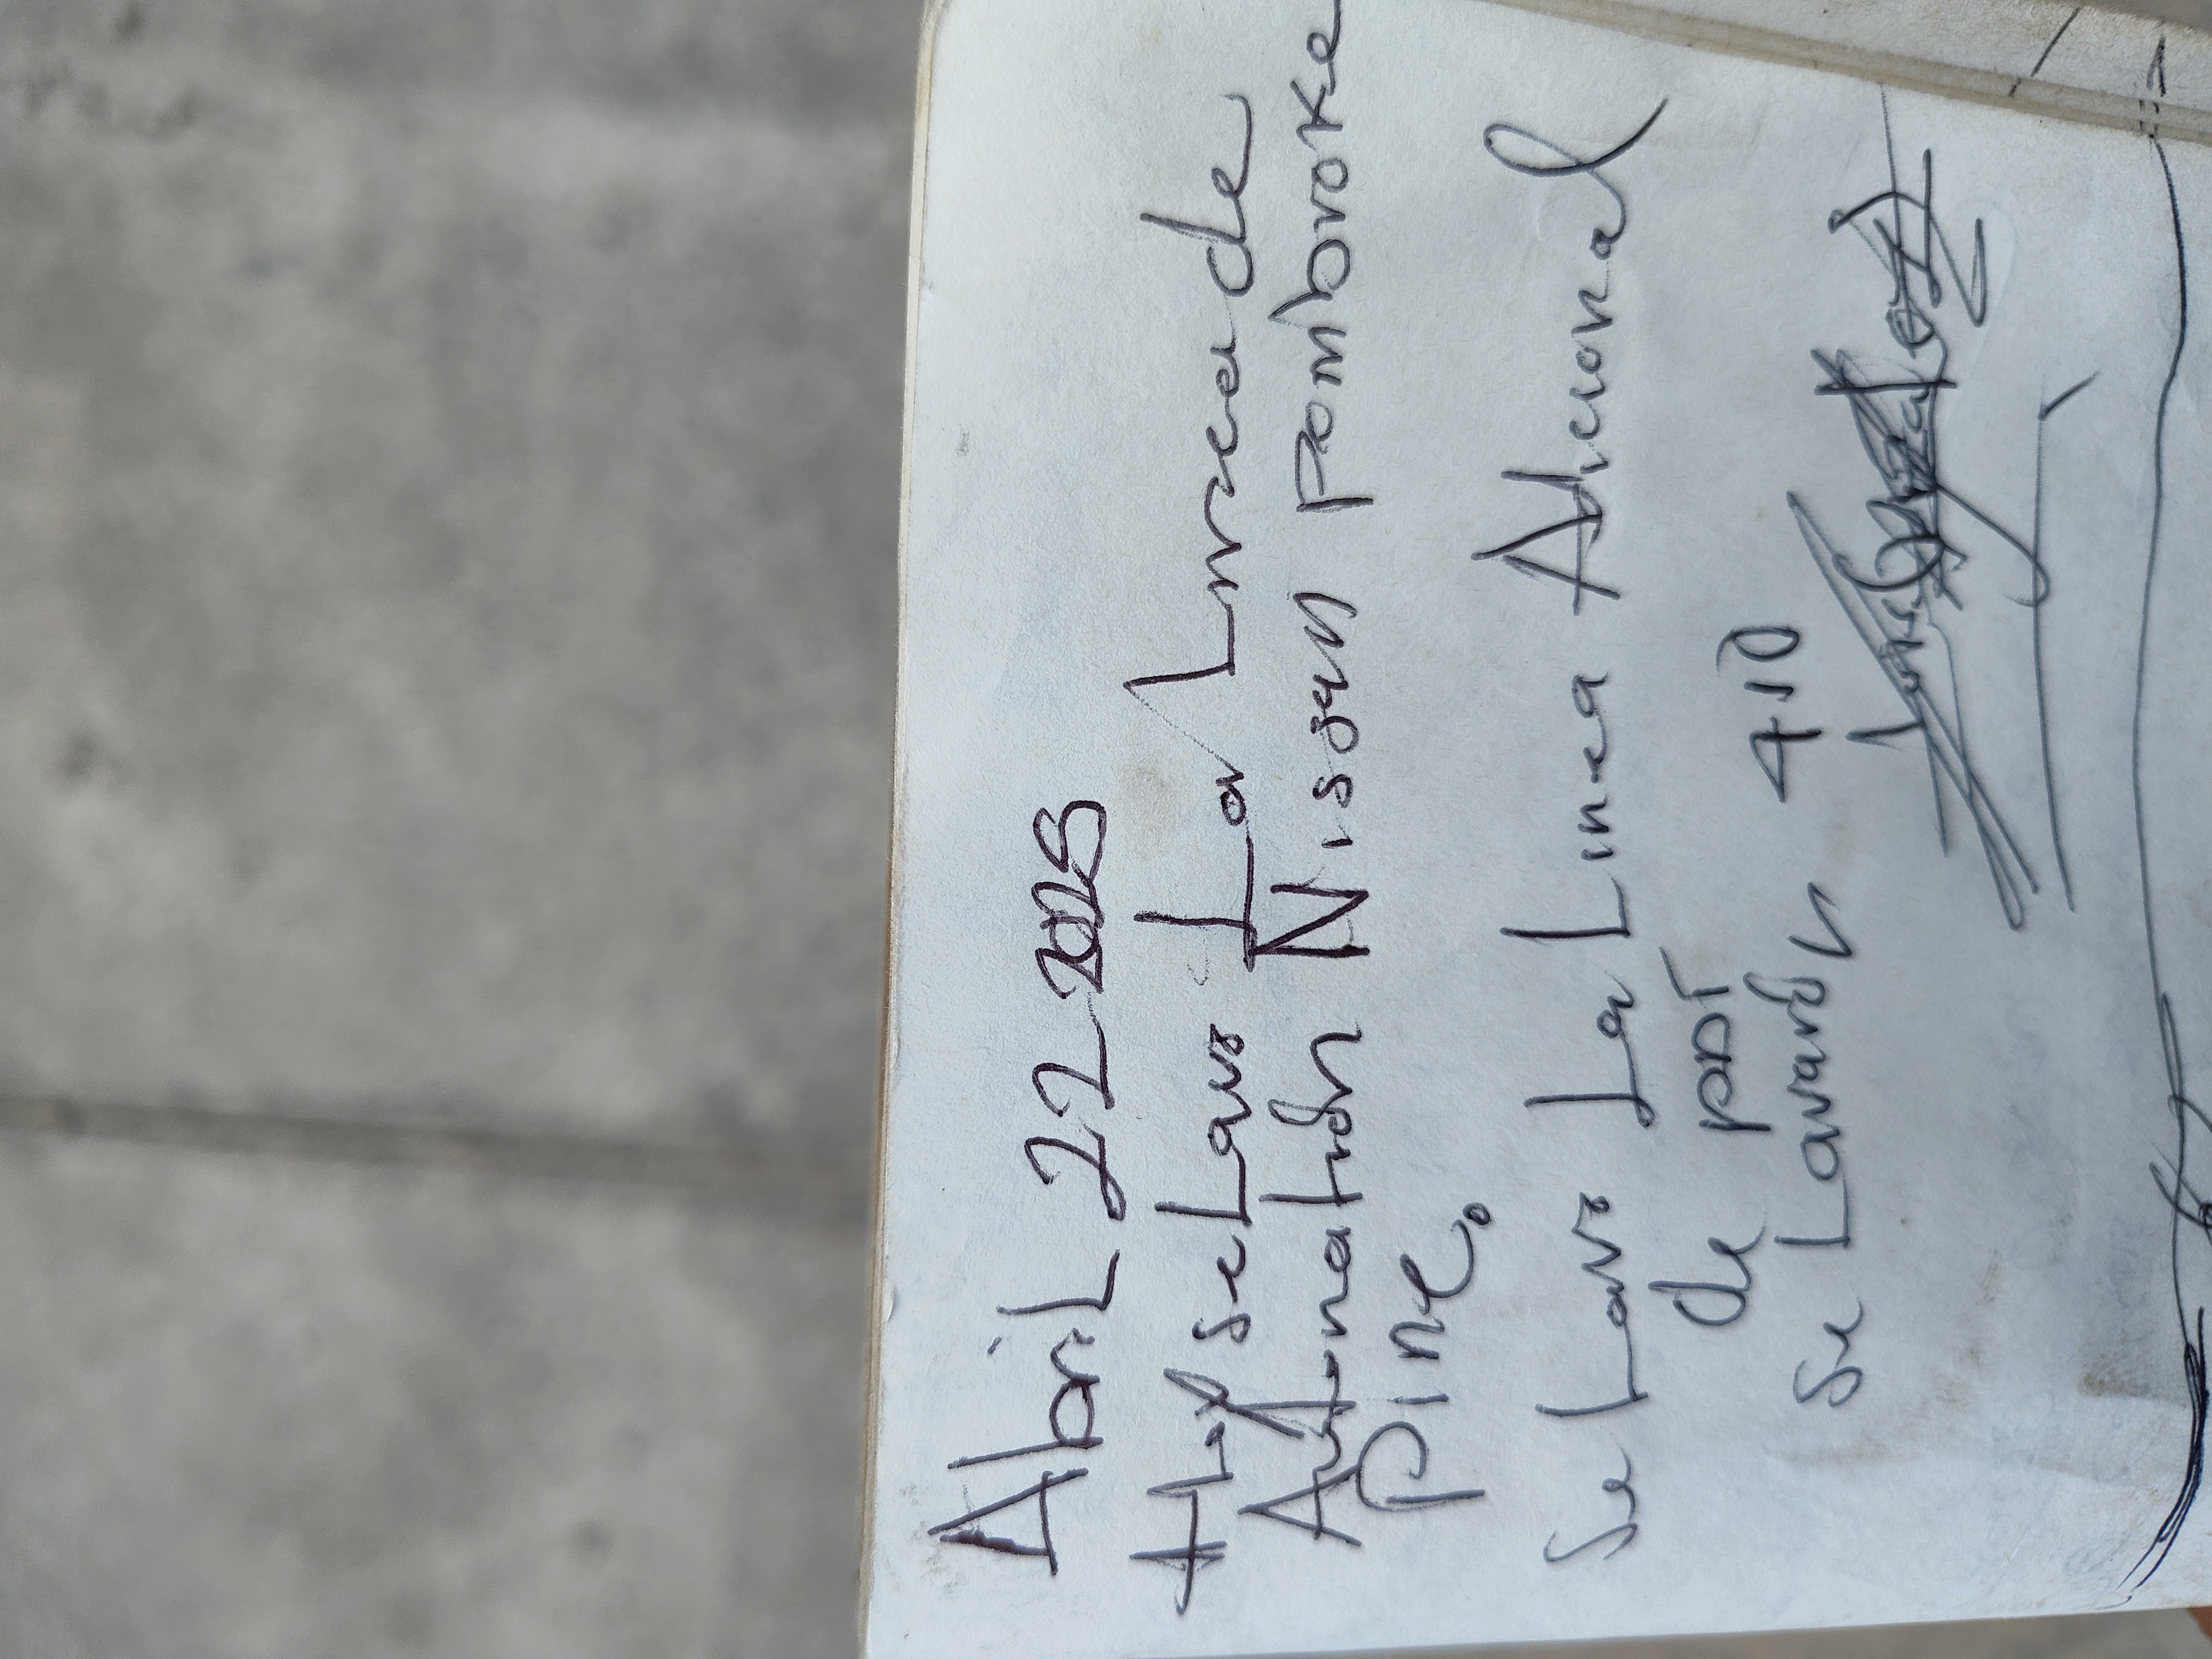 Abril 22 2025
Hoy se Lavo La Linea de
Autonation Nissan pombroke
pine.
Se Lavo La Linea Adicional
de PDI
se Lavaron 410